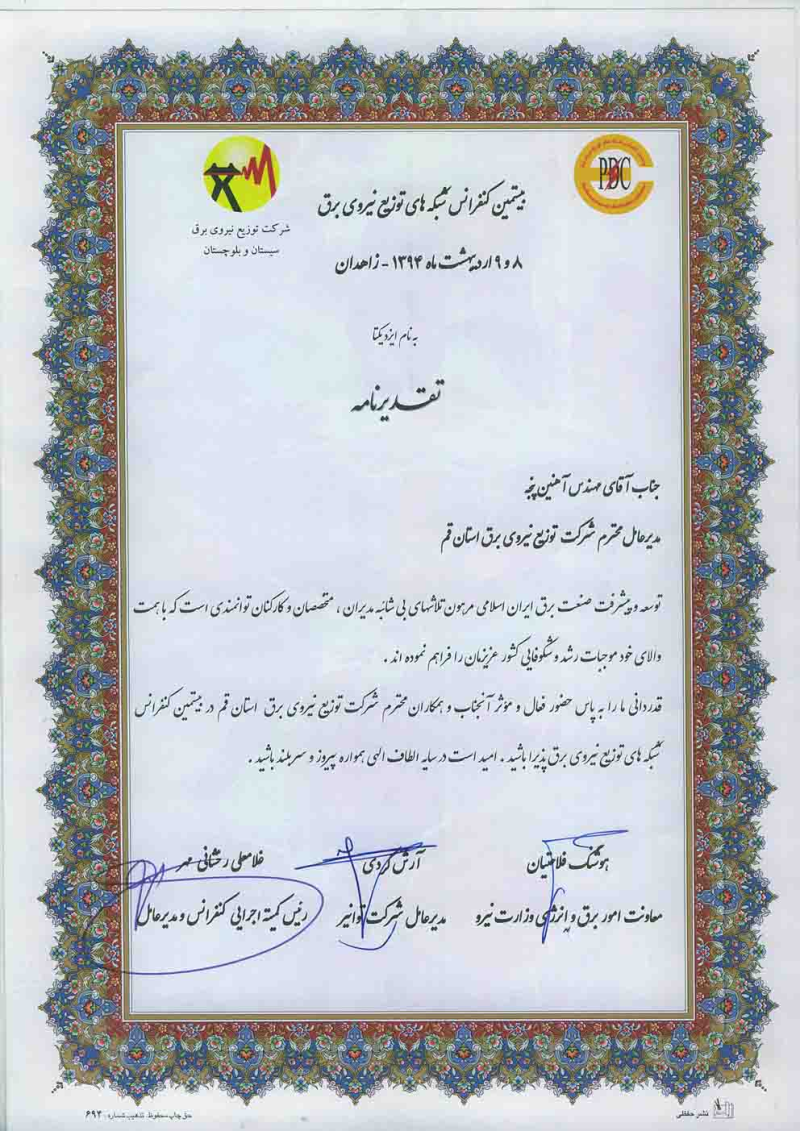 PDC
شرکت توزیع نیروی برق
سیستان و بلوچستان
بیستمین کنفرانس شبکه های توزیع نیروی برق
۸ و ۹ اردیبهشت ماه ۱۳۹۴ - زاهدان
به نام ایزد یکتا
تقدیرنامه
جناب آقای مهندس آهنین پنجه
مدیرعامل محترم شرکت توزیع نیروی برق استان قم
توسعه و پیشرفت صنعت برق ایران اسلامی مرهون تلاشهای بی شائبه مدیران ، متخصصان و کارکنان توانمندی است که با همت
والای خود موجبات رشد و شکوفایی کشور عزیزمان را فراهم نموده اند .
قدردانی ما را به پاس حضور فعال و مؤثر آنجناب و همکاران محترم شرکت توزیع نیروی برق استان قم در بیستمین کنفرانس
شبکه های توزیع نیروی برق پذیرا باشید . امید است در سایه الطاف الهی همواره پیروز و سربلند باشید .
هوشنگ فلاحتیان
آرش کردی
غلامعلی رخشانی مهر
معاونت امور برق و انرژی وزارت نیرو
مدیرعامل شرکت توانیر
رئیس کمیته اجرایی کنفرانس و مدیرعامل
نشر حفظی
حق چاپ محفوظ تذهیب شماره: ۶۹۲